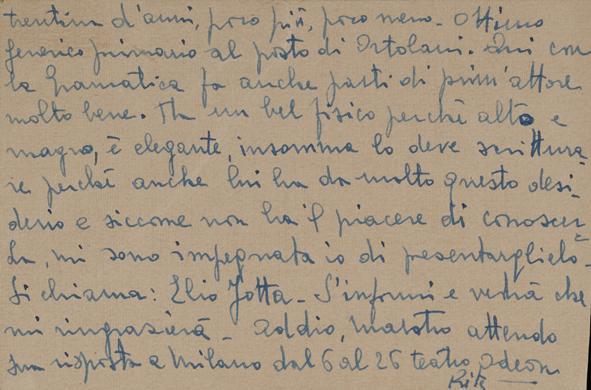 trentina d'anni, poco più, poco meno. Ottimo
generico primario al posto di Ortolani. Qui con
la Gramatica fa anche parti di prim'attore
molto bene. Ha un bel fisico perchè alto e
magro, è elegante, insomma lo deve scrittura-
re perchè anche lui ha da molto questo desi-
derio e siccome non ha il piacere di conoscer-
La, mi sono impegnata io di presentarglielo.
Si chiama: Elio Jotta - S'informi e vedrà che
mi ringrazierà - Addio, Maestro attendo
sua risposta a Milano dal 6 al 26 teatro Odeon